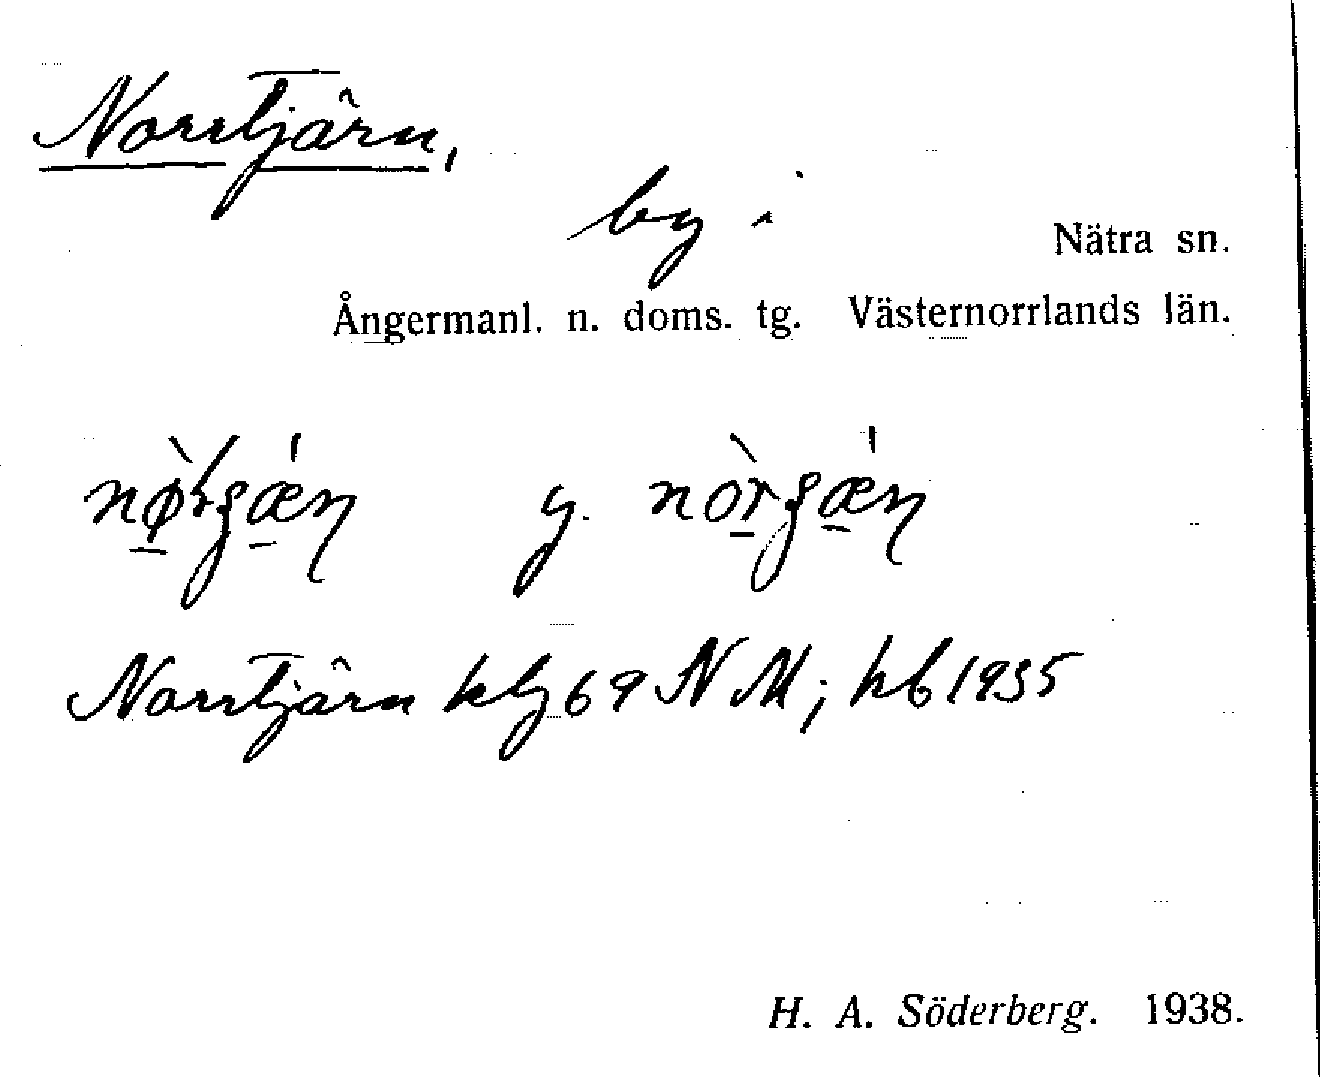 Norrtjärn,
by i
Nätra sn.
Ångermanl. n. doms. tg. Västernorrlands län.
y.
Norrtjärn klj 69 NM; hb 1935
H. A. Söderberg. 1938.